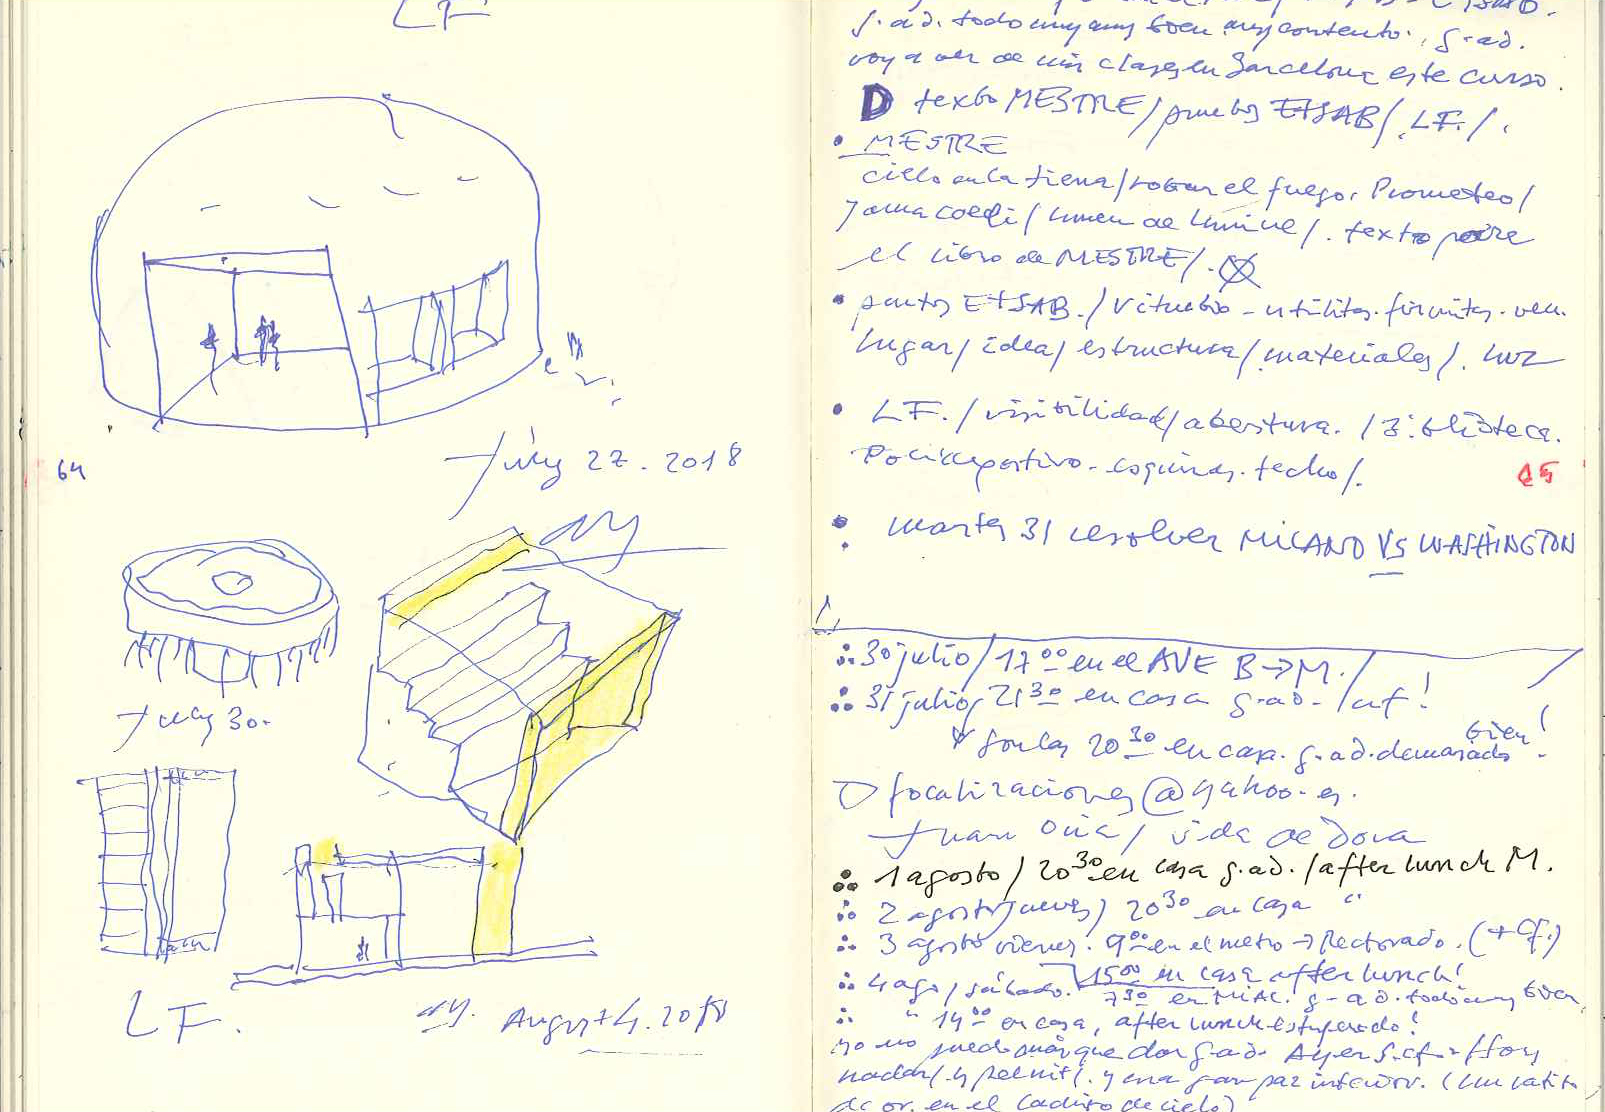 LF
July 27. 2018
64
July 30.
LF.
August 4. 2018
g.ad. todo muy muy bien muy contento., g.ad.
voy a ver de mis clases en Barcelona este curso.
D texto MESTRE/ puntos ETSAB/ LF./.
• MESTRE
cielo en la tierra/ robar el fuego. Prometeo/
Janua coeli/ lumen de lumine/. texto para
el libro de MESTRE/.
• puntos ETSAB./ Vitruvio - utilitas. firmitas. ven.
lugar/ idea/ estructura/ materiales/. luz
• LF./ visibilidad/ abertura. / Biblioteca.
Polideportivo - esquinas. techo/.
65
• martes 31 resolver MILANO VS WASHINGTON
30 julio/ 17 00 en el AVE B→M./
31 julio/ 21 30 en casa g.ad. /
son las 20 30 en casa. g.ad. demasiado bien!
focalizaciones@yahoo.es.
Juan / vida de
1 agosto/ 20 30 en casa g.ad. /after lunch M.
2 agosto jueves/ 20 30 en casa "
3 agosto viernes. 9 00 en el metro → Rectorado. (+ cf.)
4 ago/ sábado. 15 00 en casa after lunch!
7 30 en g-ad. todo muy bien,
" 14 00 en casa, after lunch estupendo!
yo no puedo más que dar g.ad. Ayer
nadar/ y y una gran paz interior. (un ratito
de or. en el)